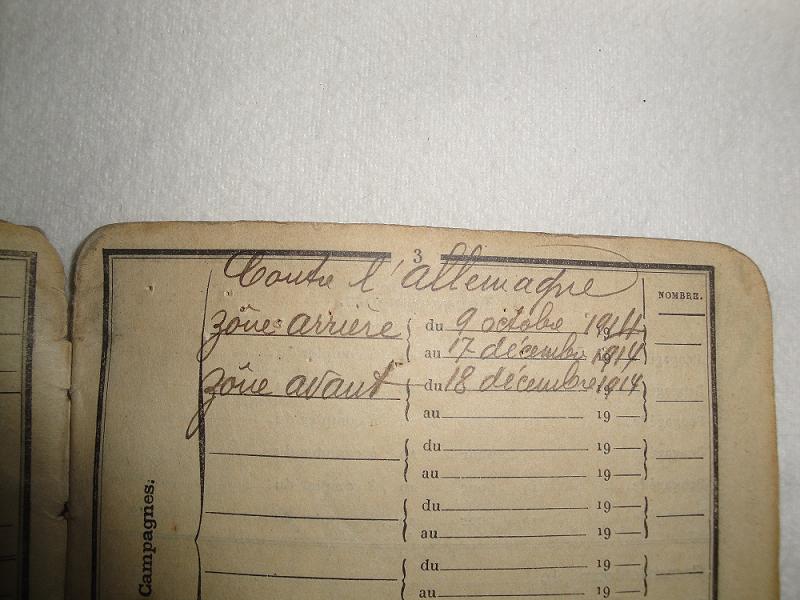 3
Contre l'allemagne
NOMBRE.
zône arrière du 9 octobre 1914
au 17 décembre 1914
zône avant du 18 décembre 1914
au 19
du 19
au 19
du 19
au 19
du 19
au 19
Campagnes.